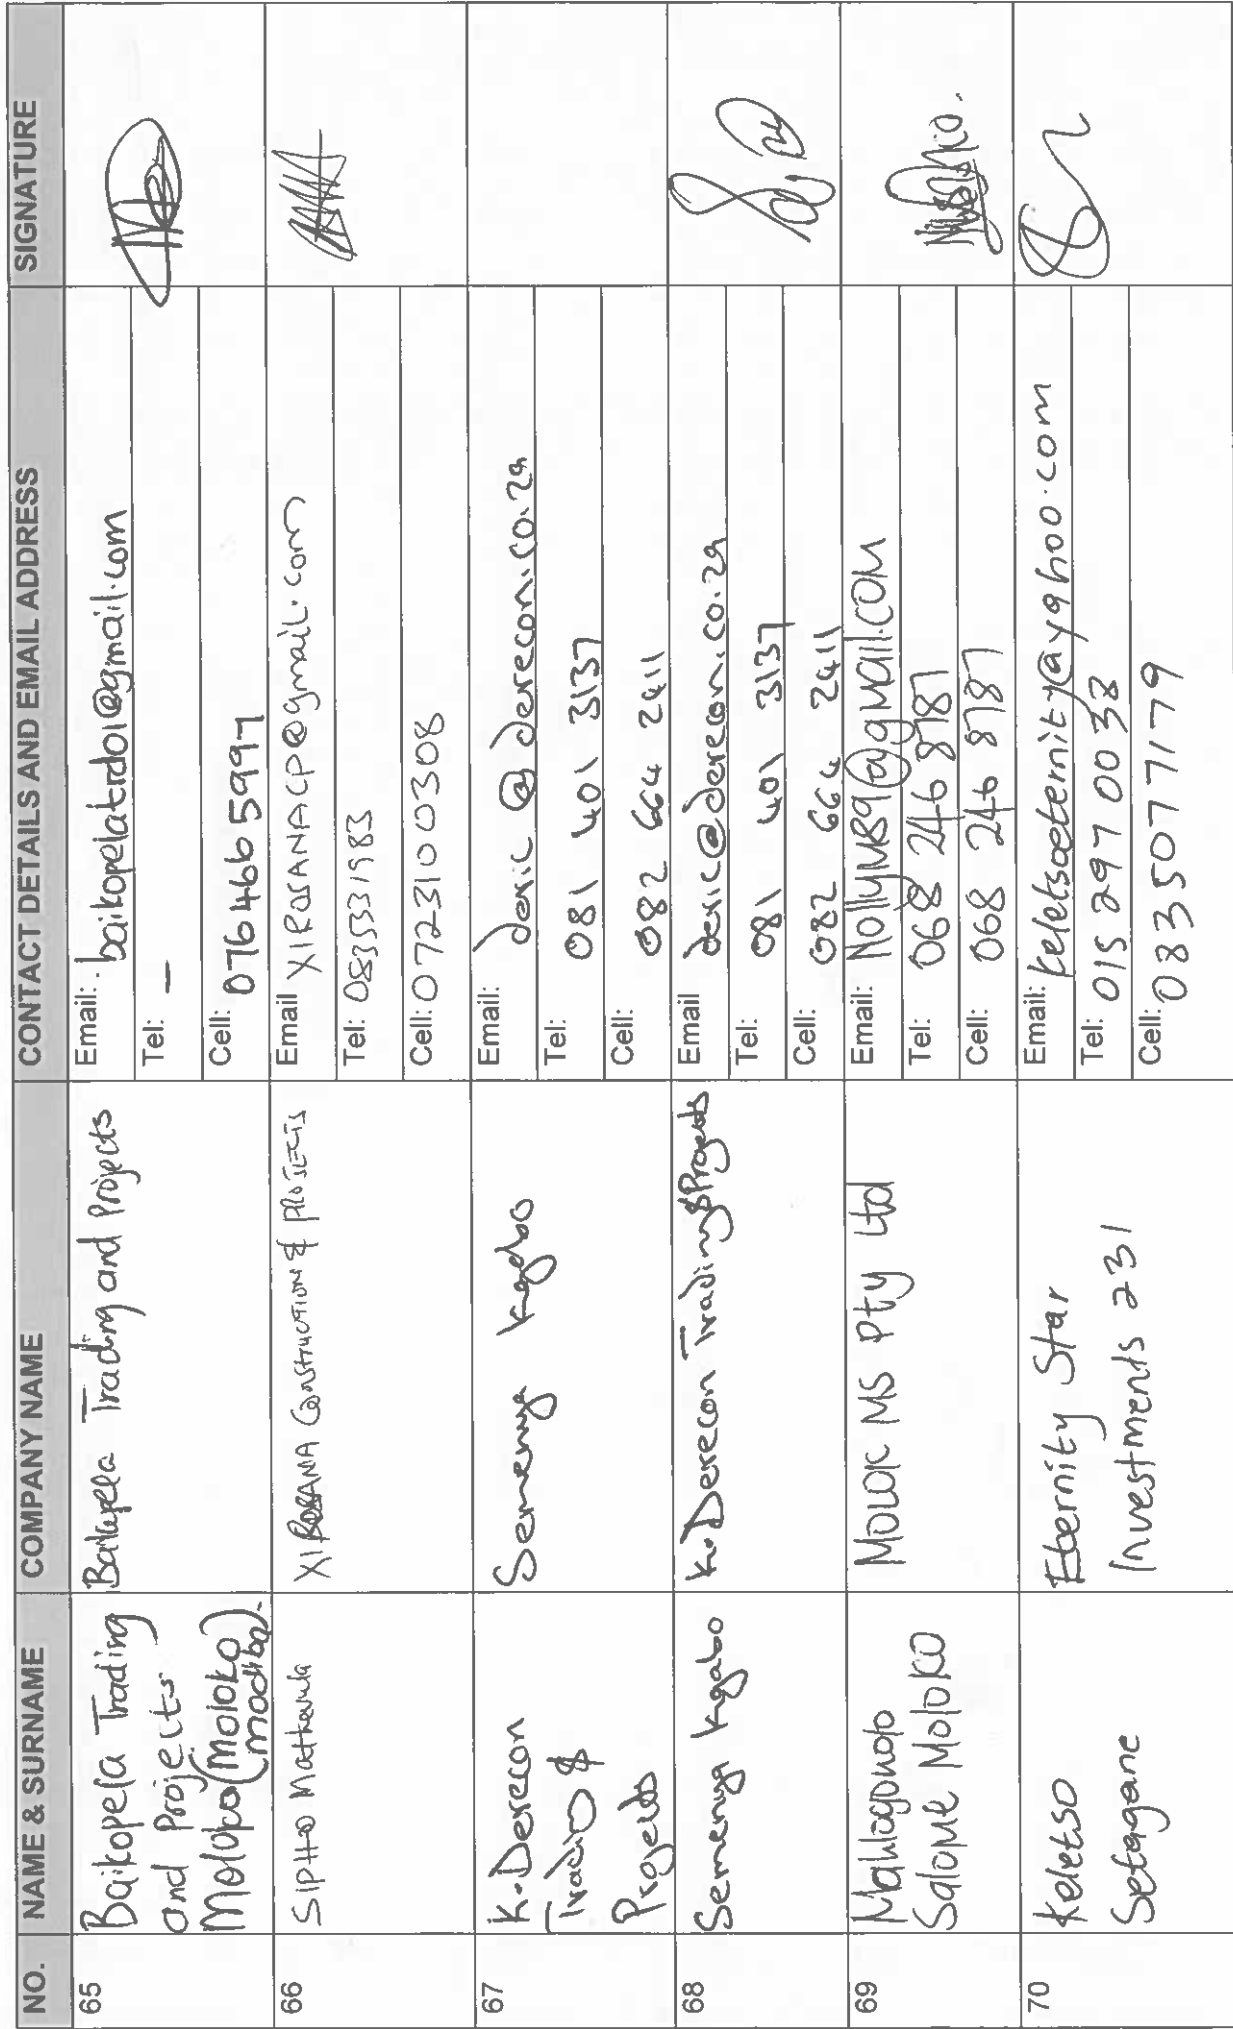 NO. NAME & SURNAME COMPANY NAME CONTACT DETAILS AND EMAIL ADDRESS SIGNATURE
65
Baikopela Trading
and Projects
Moloko (Moloko
modiba).
Baikopela Trading and Projects
Email: baikopelatrd01@gmail.com
Tel: —
Cell: 076 466 5997
66
SIPHO Mathavula
XIROSANA Construction & PROJECTS
Email XIROSANACP@gmail.com
Tel: 0835331983
Cell: 0723100308
67
K. Derecon
Trading &
Projects
Semenya Kgabo
Email: deric@derecon.co.za
Tel: 081 401 3137
Cell: 082 664 2411
68
Semenya Kgabo
K. Derecon Trading & Projects
Email deric@derecon.co.za
Tel: 081 401 3137
Cell: 082 664 2411
69
Mahlogonolo
Salome Moloko
MOLOK MS Pty Ltd
Email: NollyMR9@gmail.com
Tel: 068 246 8787
Cell: 068 246 8787
70
Keletso
Setagane
Eternity Star
Investments 231
Email: keletsoeternity@yahoo.com
Tel: 015 297 0038
Cell: 083 507 7179